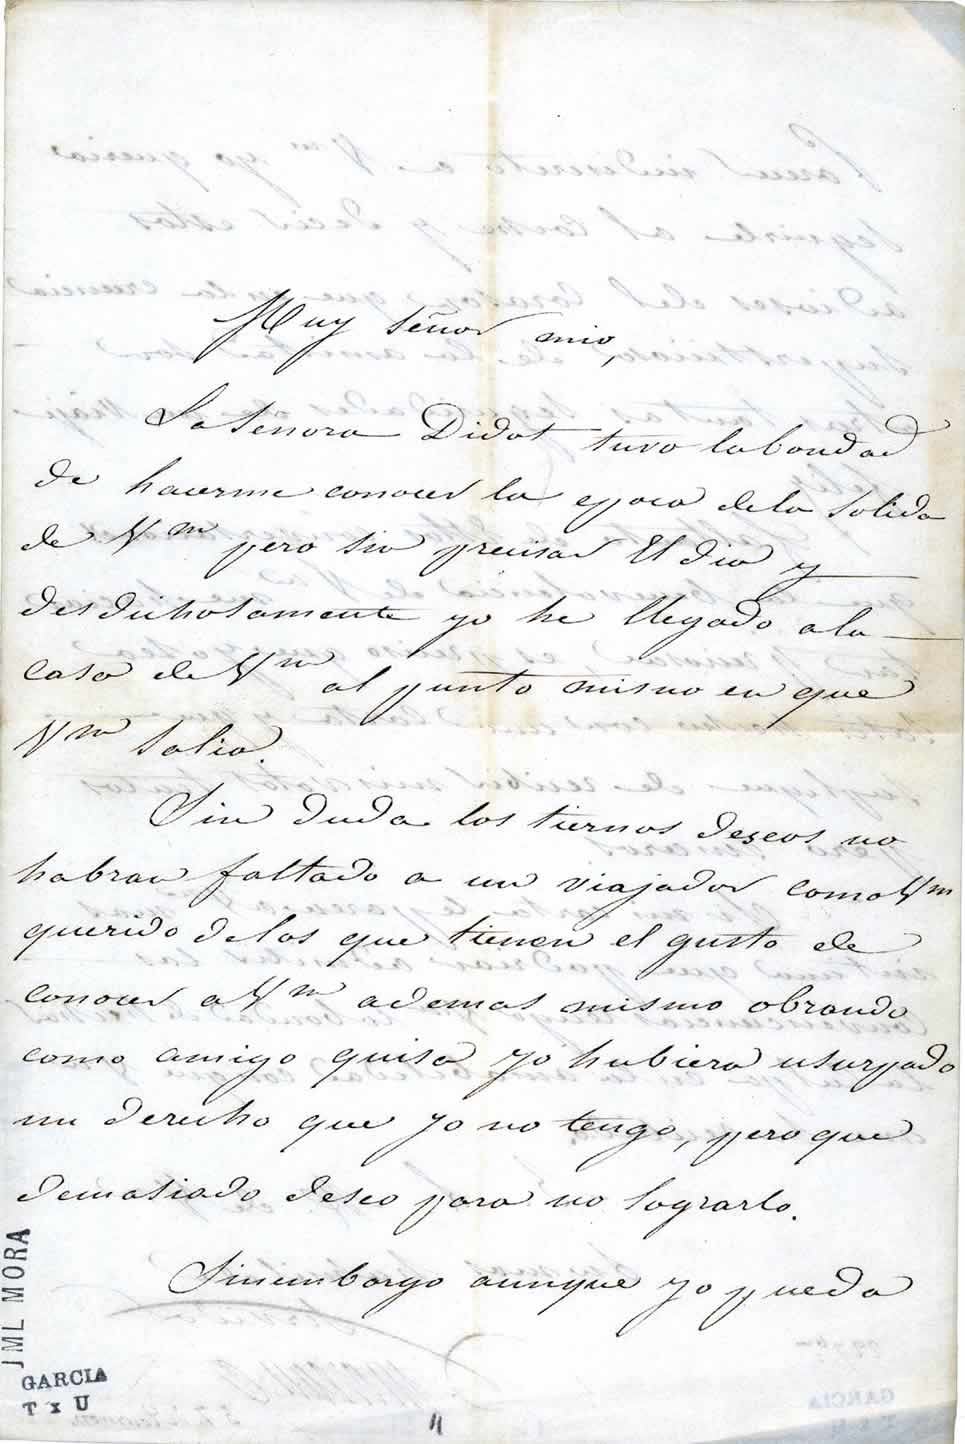 Muy señor mio,
La Senora Didot tuvo la bondad
de hacerme conocer la epoca de la salida
de Vm pero sin precisar El dia y
desdichosamente yo he llegado a la
casa de Vm al punto mismo en que
Vm salia.
Sin duda los tiernos deseos no
habran faltado a un viajador como Vm
querido de los que tienen el gusto de
conocer a Vm ademas mismo obrando
como amigo quisa yo hubiera usurpado
un derecho que yo no tengo, pero que
demasiado deseo para no lograrlo.
Sinembargo aunque yo pueda
JML MORA
GARCIA
T x U
11